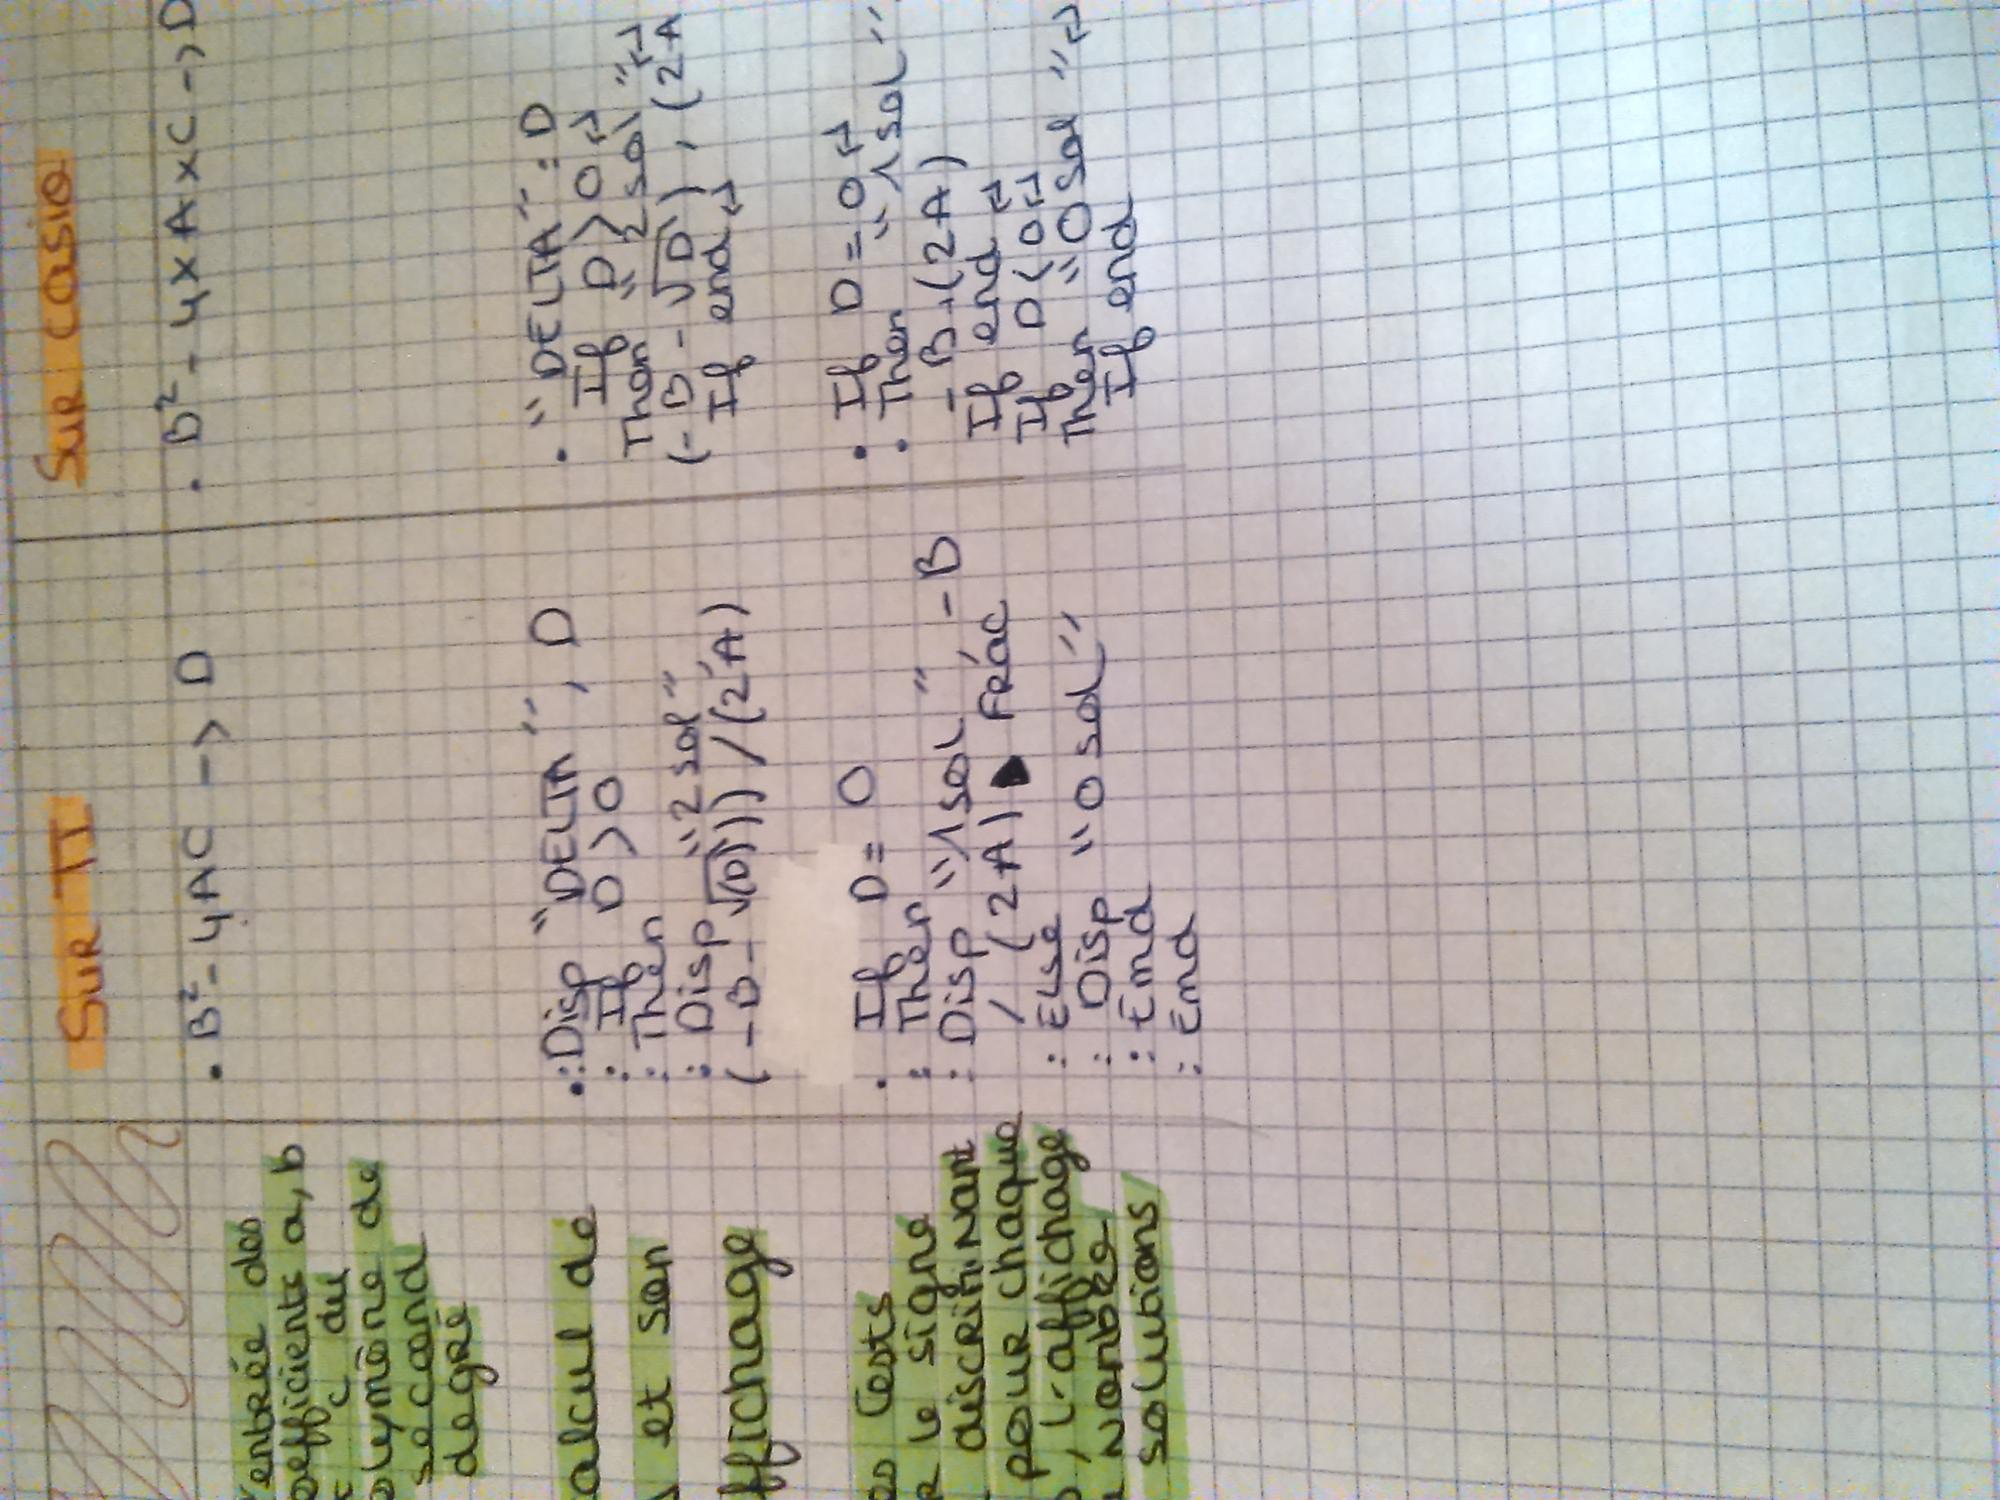 Sur TI
Sur Casio
'entrée des
oefficients a, b
t c du
olymône de
second
degré
. B² - 4AC -> D
. B² - 4 x A x C -> D
alcul de
et son
ffichage
.: Disp "DELTA", D
: If D > 0
: Then
: Disp "2 sol"
(-B-√(D))) / (2A)
. "DELTA" : D
If D > 0 ↵
Then "2 sol" ↵
(-B-√D), (2A
If end ↵
es tests
r le signe
discriminant
pour chaque
, l'affichage
nombre
solutions
. If D = 0
: Then
: Disp "1 sol" -B
/ (2A) ▶ Frac
: Else
: Disp "0 sol"
: End
: End
. If D = 0 ↵
. Then "1 sol"
-B,(2A)
If end ↵
If D < 0 ↵
Then "0 sol" ↵
If end